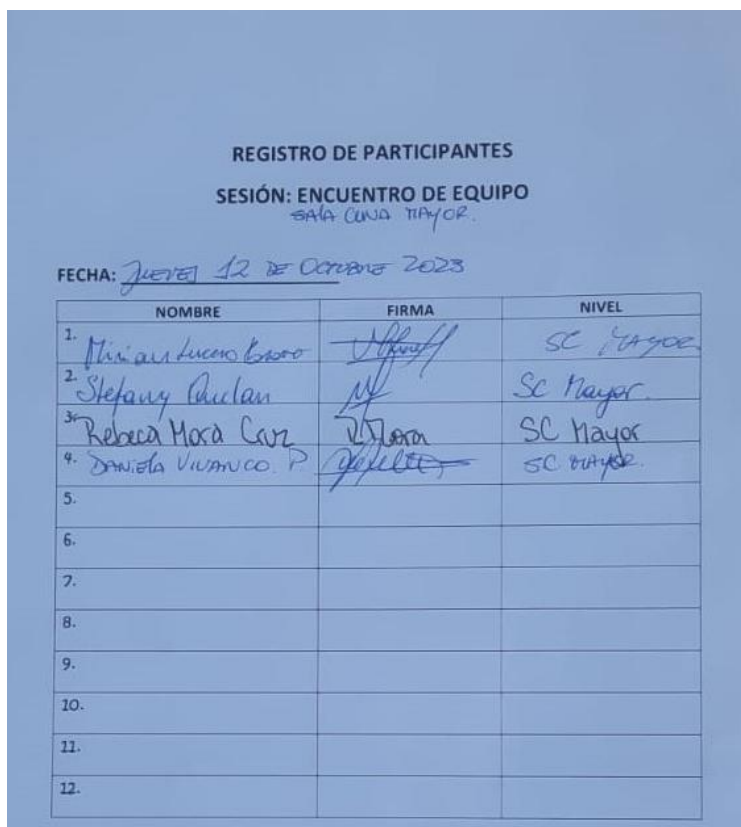 REGISTRO DE PARTICIPANTES
SESIÓN: ENCUENTRO DE EQUIPO
SALA CUNA MAYOR.
FECHA: JUEVES 12 DE OCTUBRE 2023
NOMBRE FIRMA NIVEL
1. Lucero SC MAYOR
2. Stefany SC Mayor.
3. Rebeca Mora Cruz R Mora SC Mayor
4. DANIELA VIVANCO. P SC MAYOR.
5.
6.
7.
8.
9.
10.
11.
12.